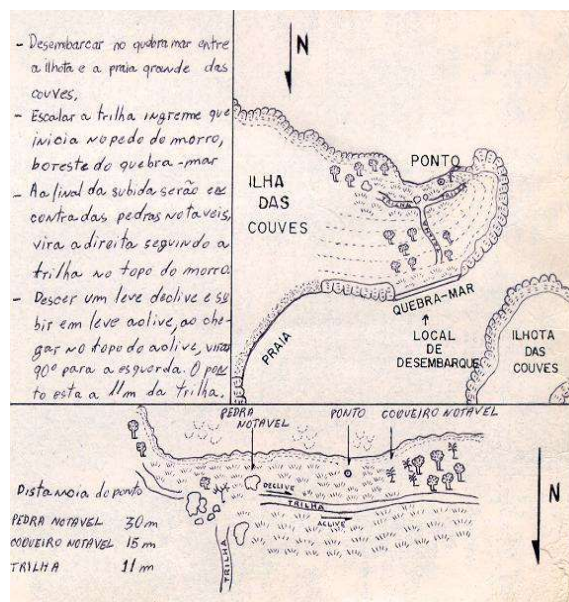 - Desembarcar no quebramar entre
a ilhota e a praia grande das
couves.
- Escalar a trilha ingreme que
inicia no pé do do morro,
boreste do quebra-mar
- Aa final da subida serão en
contradas pedras notaveis,
vira a direita seguindo a
trilha no topo do morro.
- Descer um leve declive e su
bir em leve aclive, ao che
gar no topo do aclive, virar
90º para a esquerda. O pon
to esta a 11m da trilha.
N
PONTO
ILHA
DAS
COUVES
TRILHA
TRILHA
QUEBRA-MAR
LOCAL
DE
DESEMBARQUE
PRAIA
ILHOTA
DAS
COUVES
PEDRA
NOTAVEL
PONTO
COQUEIRO NOTAVEL
Distancia do ponto
PEDRA NOTAVEL 30m
COQUEIRO NOTAVEL 15 m
TRILHA 11 m
DECLIVE
TRILHA
ACLIVE
TRILHA
N